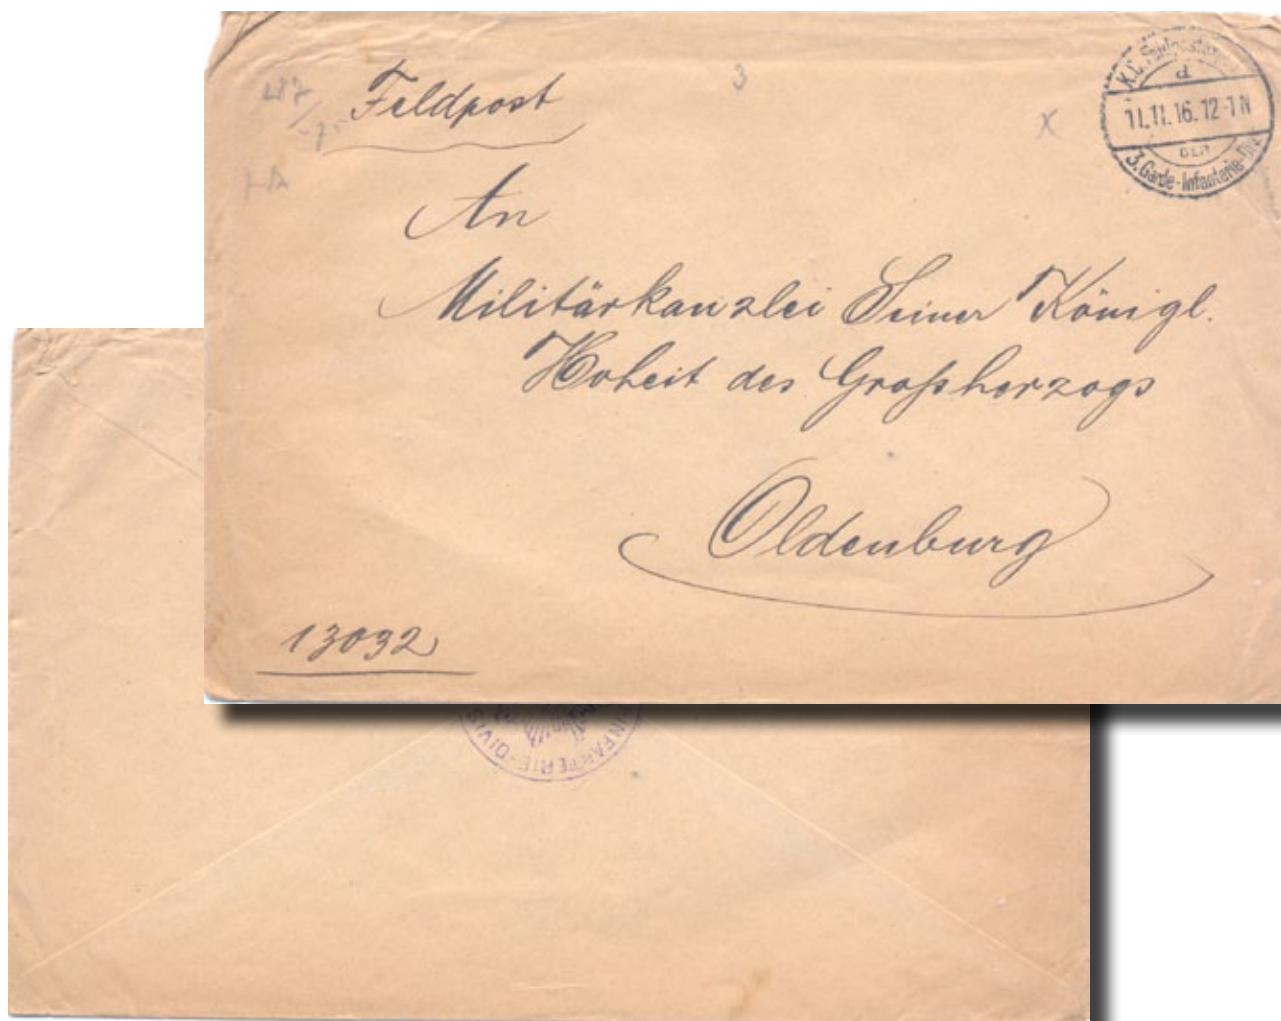 Feldpost
3
X
11.11.16.12-1N
DER
3. Garde-Infanterie-Div.
An
Militärkanzlei Seiner Königl.
Hoheit des Großherzogs
Oldenburg
13032
INFANTERIE-DIVIS